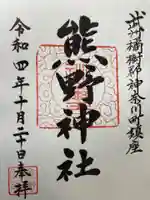 武州橘樹郡神奈川町鎮座
熊野神社
令和四年十月二十日奉拝